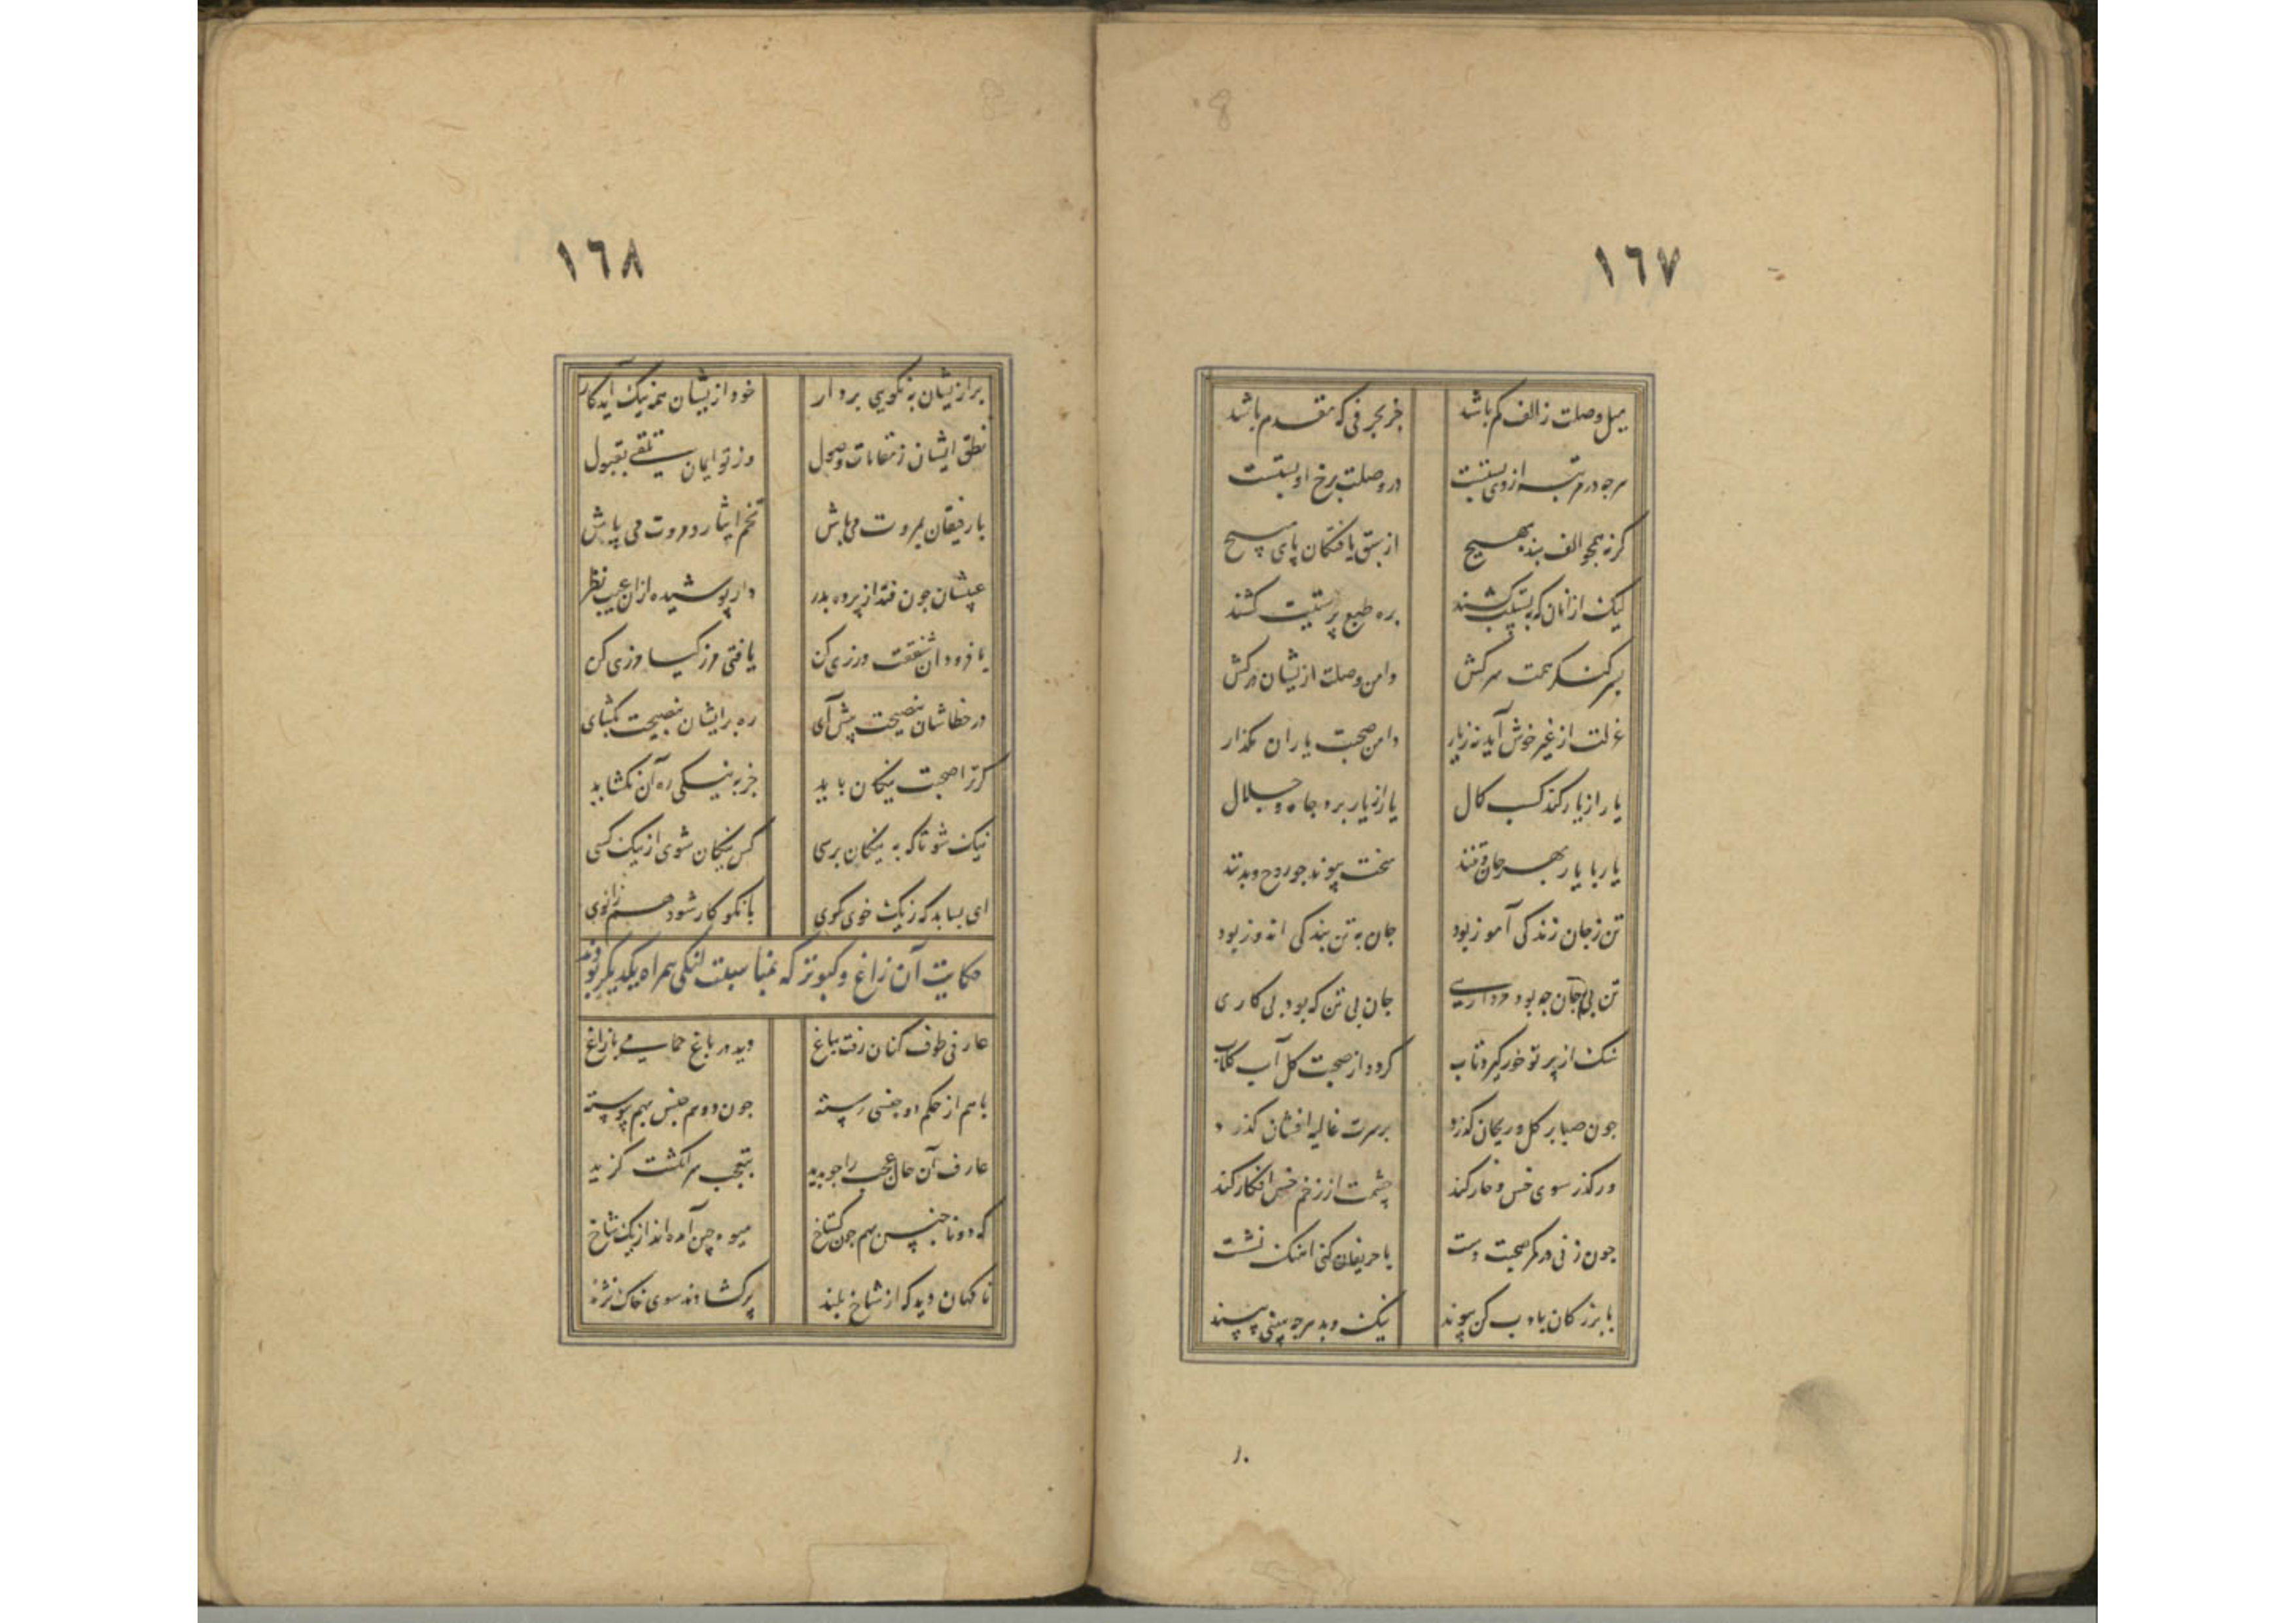 ١٦٧
میل وصلت ز الف کم باشد جز بحرفی که مقدم باشد
هرجه در مرتبه از وی پستست در وصلت برخ او بستست
کرنه همجو الف بند بهیچ از سبق یافتکان پای مپیچ
لیک از انان که به پستیت کشند بره طبع پرستیت کشند
بسر کنکر همت سر کش دامن وصلت ازیشان در کش
عزلت از غیر خوش آید نه زیار دامن صحبت یاران مکذار
یار از یار کند کسب کمال یار از یار برد جاه و جلال
یار با یار بهر جان و تنند سخت پیوند جو روح و بدنند
تن ز جان زندکی آموز بود جان به تن بندکی اندوز بود
تن بی جان جه بود مرداری جان بی تن که بود بی کاری
سنک از پرتو خور کیرد تاب کردد از صحبت کل آب کلاب
جون صبا بر کل و ریحان کذرد بر سرت غالیه افشان کذرد
ور کذر سوی خس و خار کند چشمت از زخم خس افکار کند
جون زنی در کمر صحبت دست با حریفان کنی آهنک نشست
با بزرکان بادب کن پیوند نیک و بد هرجه ببینی بپسند
١٠
١٦٨
بر ازیشان به نکویی بردار خود ازیشان همه نیک آید کار
نطق ایشان ز مقامات وصول وز تو ایمان تلقی بقبول
با رفیقان بمروت می باش تخم ایثار و مروت می پاش
عیبشان جون فتد از پرده بدر دار پوشیده ازان عیب نظر
با فرودان شفقت ورزی کن یافتی مرز کیا مرزی کن
در خطاشان بنصیحت پیش آی ره برایشان بنصیحت بکشای
کر ترا صحبت نیکان باید جز به نیکی ره آن نکشاید
نیک شو تا که به نیکان برسی کس نیکان شوی از نیک کسی
ای بسا بد که ز یک خوی نکوی با نکو کار شود هم زانوی
حکایت آن زاغ و کبوتر که بمناسبت لنکی همراه یکدیکر بودند
عارفی طوف کنان رفت بباغ دید در باغ حمامی با زاغ
با هم از حکم دو جنسی رسته جون دو هم جنس بهم پیوسته
عارف آن حال عجب را جو بدید بتعجب سر انکشت کزید
که دو ناجنس بهم جون کستاخ میوه چین آمده اند از یک شاخ
ناکهان دید که از شاخ بلند پر کشادند سوی خاک نژند